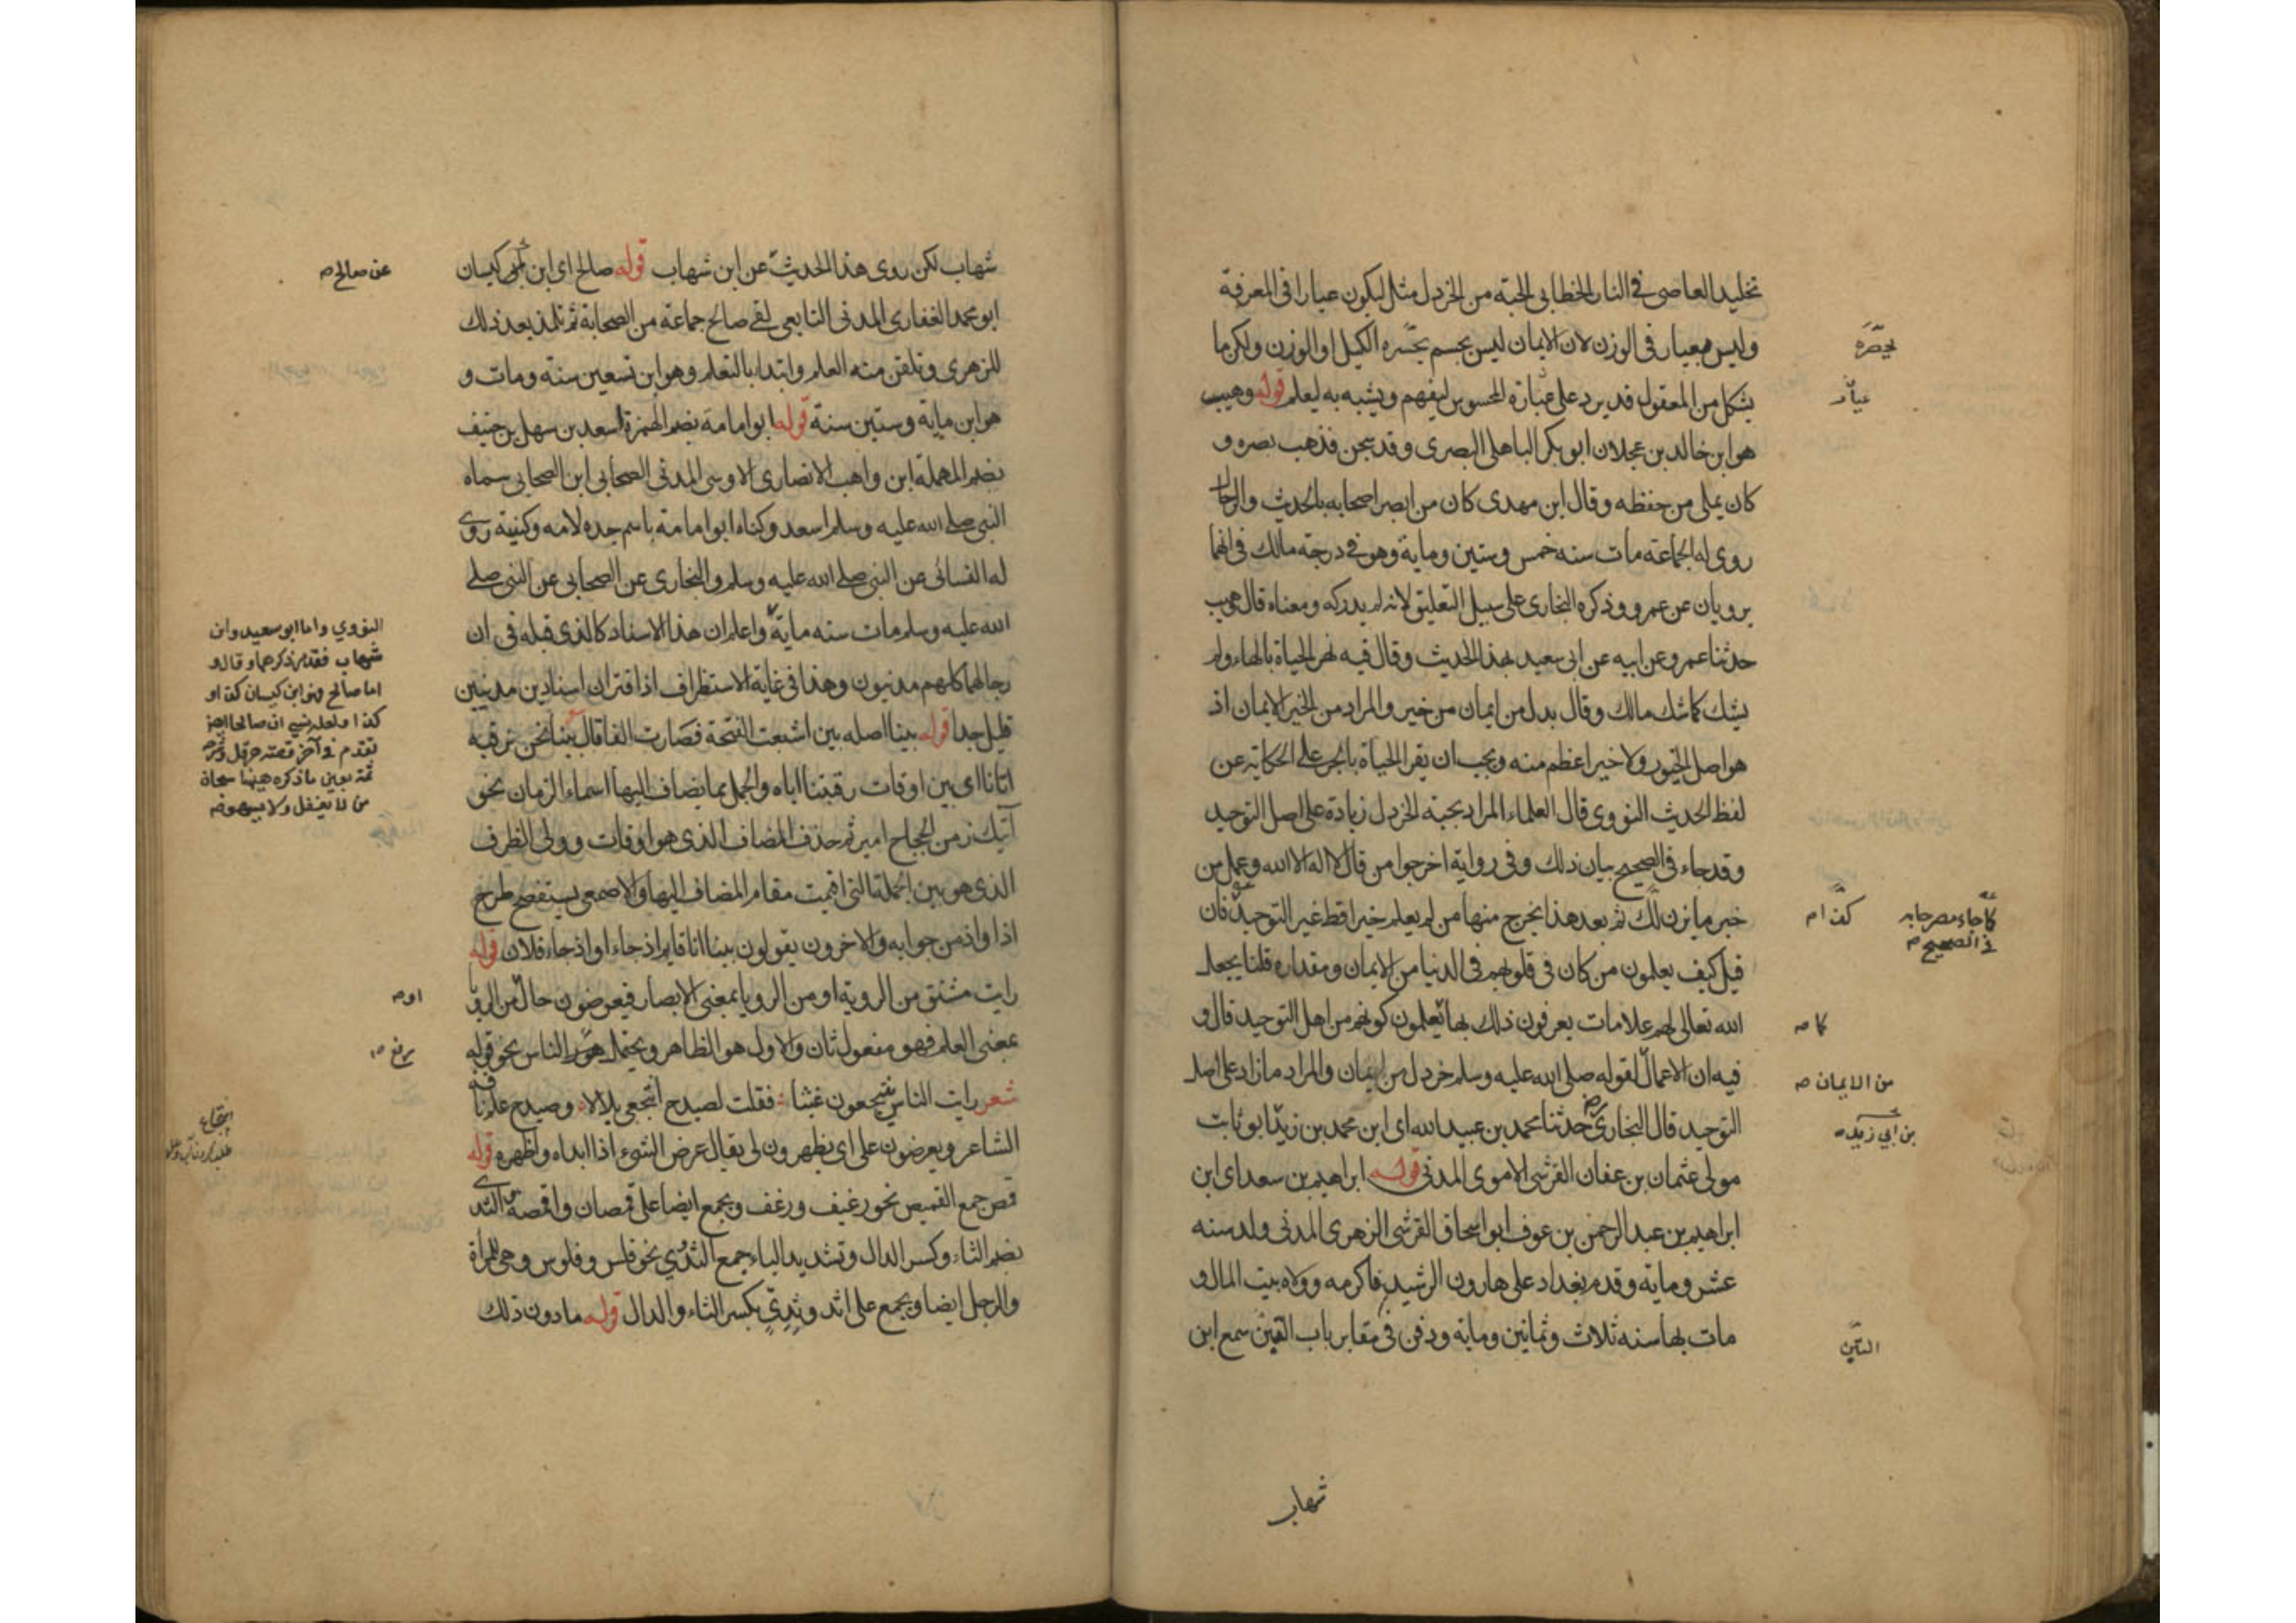 تخليد العاصي في النار الخطابي الحبة من الخردل مثل ليكون عيارا في المعرفة
وليس بعيار في الوزن لان الايمان ليس بجسم يحسره الكيل او الوزن ولكن ما
يشكل من المعقول قد يرد على عبارة المحسوس ليفهم ويشبه به ليعلم قوله وهيب
هو ابن خالد بن عجلان ابو بكر الباهلي البصري وقد سجن فذهب بصره و
كان يملي من حفظه وقال ابن مهدي كان من ابصر اصحابه بالحديث والرجال
روى له الجماعة مات سنه خمس وستين وماية وهو في درجة مالك في انهما
يرويان عن عمرو وذكره البخاري على سبيل التعليق لانه لم يدركه ومعناه قال وهيب
حدثنا عمرو عن ابيه عن ابي سعيد بهذا الحديث وقال فيه نهر الحياة بالهاء ولم
يشك كما شك مالك وقال بدل من ايمان من خير والمراد من الخير الايمان اذ
هو اصل الخيور ولا خير اعظم منه ويجب ان يقرا الحياة بالجر على الحكاية عن
لفظ الحديث النووي قال العلماء المراد بحبة الخردل زيادة على اصل التوحيد
وقد جاء في الصحيح بيان ذلك وفي رواية اخرجوا من قال لا اله الا الله وعمل من
خير ما يزن ذلك ثم بعد هذا يخرج منها من لم يعلم خيرا قط غير التوحيد فان
قيل كيف يعلمون من كان في قلوبهم في الدنيا من الايمان ومقداره قلنا يجعل
الله تعالى لهم علامات يعرفون ذلك بها يعلمون كونهم من اهل التوحيد قال و
فيه ان الاعمال لقوله صلى الله عليه وسلم خردل من ايمان والمراد ما زاد على اصل
التوحيد قال البخاري حدثنا محمد بن عبيد الله اي ابن محمد بن زيد ابو ثابت
مولى عثمان بن عفان القرشي الاموي المدني قوله ابراهيم بن سعد اي ابن
ابراهيم بن عبد الرحمن بن عوف ابو اسحاق القرشي الزهري المدني ولد سنه
عشر وماية وقدم بغداد على هارون الرشيد فاكرمه وولاه بيت المال و
مات بها سنه ثلاث وثمانين وماية ودفن في مقابر باب التين سمع ابن
شهاب
يحصره
عيار
كما جاء
في الصحيح
كما
من الايمان
بن ابي زيد
التين
شهاب لكن روى هذا الحديث عن ابن شهاب قوله صالح اي ابن كيسان
ابو محمد الغفاري المدني التابعي لقي صالح جماعة من الصحابة ثم تلمذ بعد ذلك
للزهري وتلقن منه العلم وابتدا بالتعلم وهو ابن تسعين سنه ومات و
هو ابن ماية وستين سنة قوله ابو امامة بضم الهمزة اسعد بن سهل بن حنيف
بضم المهملة ابن واهب الانصاري الاوسي المدني الصحابي ابن الصحابي سماه
النبي صلى الله عليه وسلم اسعد وكناه ابو امامة باسم جده لامه وكنيته روى
له النسائي عن النبي صلى الله عليه وسلم والبخاري عن الصحابي عن النبي صلى
الله عليه وسلم مات سنه ماية واعلم ان هذا الاسناد كالذي قبله في ان
رجالهما كلهم مدنيون وهذا في غاية الاستظراف اذ اقتران اسنادين مدنيين
قليل جدا قوله بينا اصله بين اشبعت الفتحة فصارت الفا قال بينا نحن نرقبه
اتانا اي بين اوقات رقبتنا اياه والجمل مما يضاف اليها اسماء الزمان نحو
آتيك زمن الحجاج امير ثم حذف المضاف الذي هو اوقات وولى الظرف
الذي هو بين الجملة التي اقيمت مقام المضاف اليها والاصمعي يستفصح طرح
اذا واذ من جوابه والاخرون يقولون بينا انا قايم اذ جاء او اذ جاء فلان قوله
رايت مشتق من الروية او من الرويا بمعنى الابصار فيعرضون حال من الرويا
بمعنى العلم فهو مفعول ثان والاول هو الظاهر ويحتمل الناس نحو قوله
شعر رايت الناس ينتجعون غيثا فقلت لصيدح انتجعي بلالا وصيدح علم ناقة
الشاعر ويعرضون علي اي يظهرون لي يقال عرض الشيء اذا ابداه واظهره قوله
قمص جمع القميص نحو رغيف ورغف ويجمع ايضا على قمصان واقمصة الثدي
بضم الثاء وكسر الدال وتشديد الياء جمع الثدي نحو فلس وفلوس وهي للمراة
والرجل ايضا ويجمع على اثد وثدي بكسر الثاء والدال قوله ما دون ذلك
عن صالح
النووي واما ابو سعيد وابن
شهاب فقد مر ذكرهما وقال و
اما صالح فهو ابن كيسان كذا و
تقدم في آخر قصة هرقل
ثمة بعين ما ذكره ههنا سبحان
من لا يغفل ولا يسهو
او
رفع
انتجاع